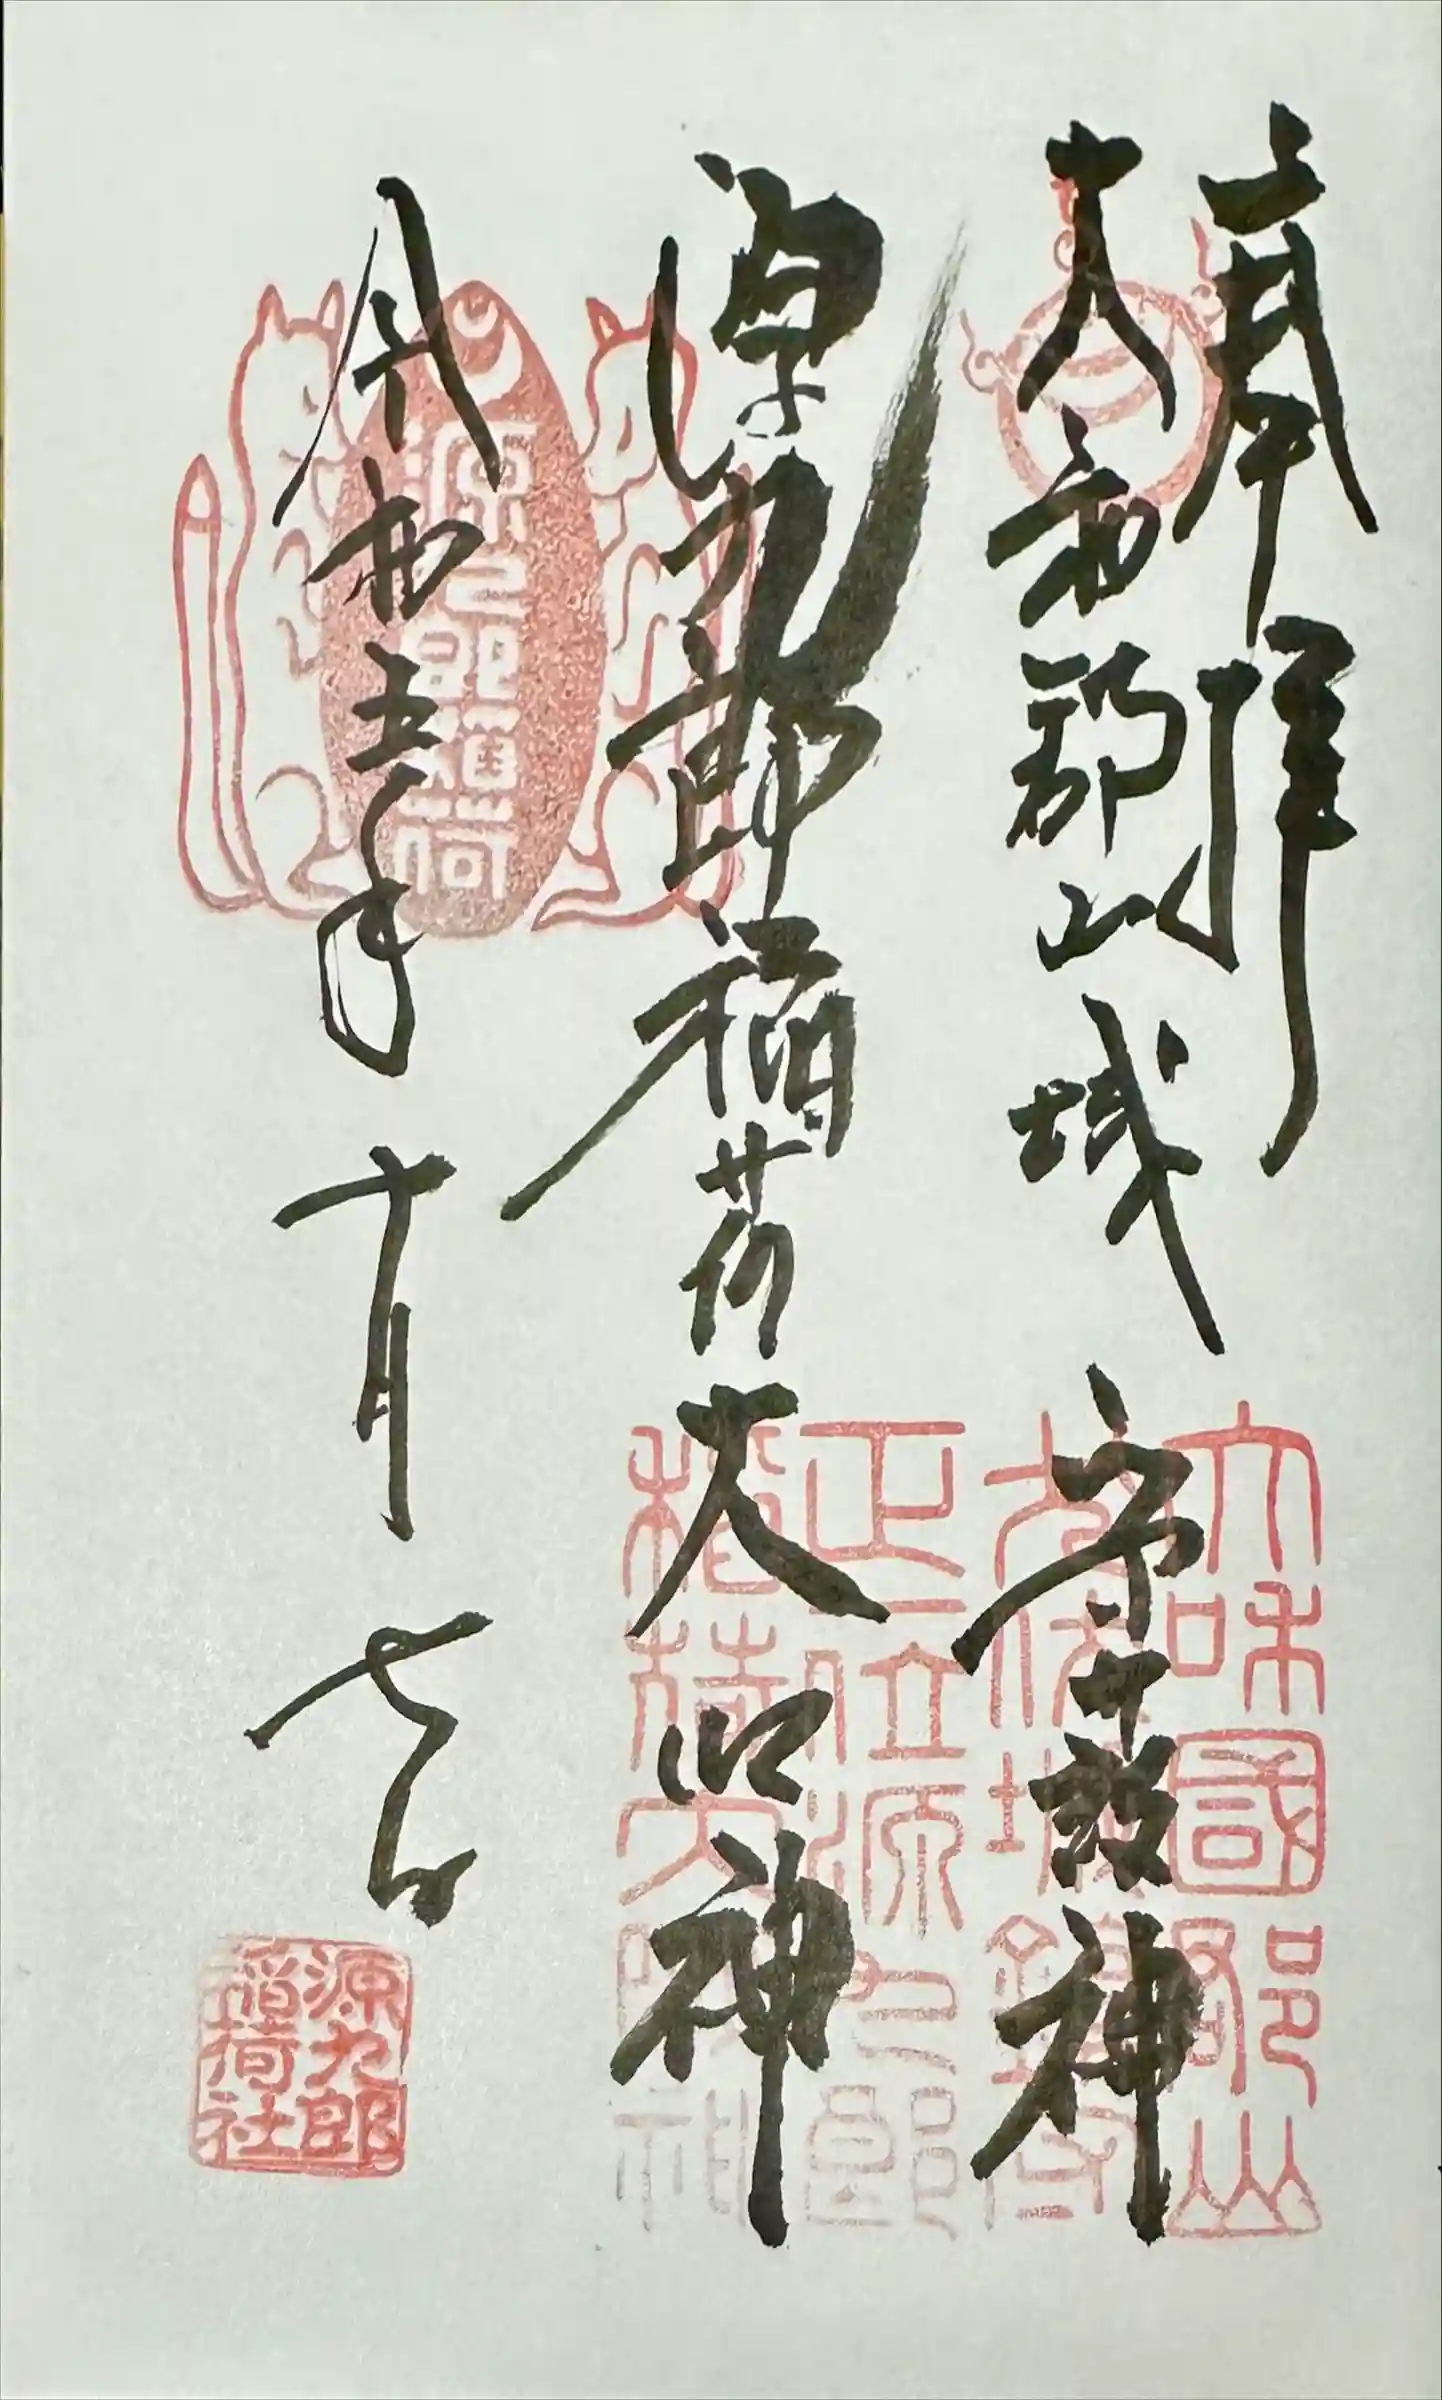 奉拝
大和郡山城 守護神
源九郎稲荷大明神
令和五年十月七日
源九郎稲荷
大和國郡山
九佐城鎮守
正一位源九郎
稲荷大明神
源九郎
稲荷社